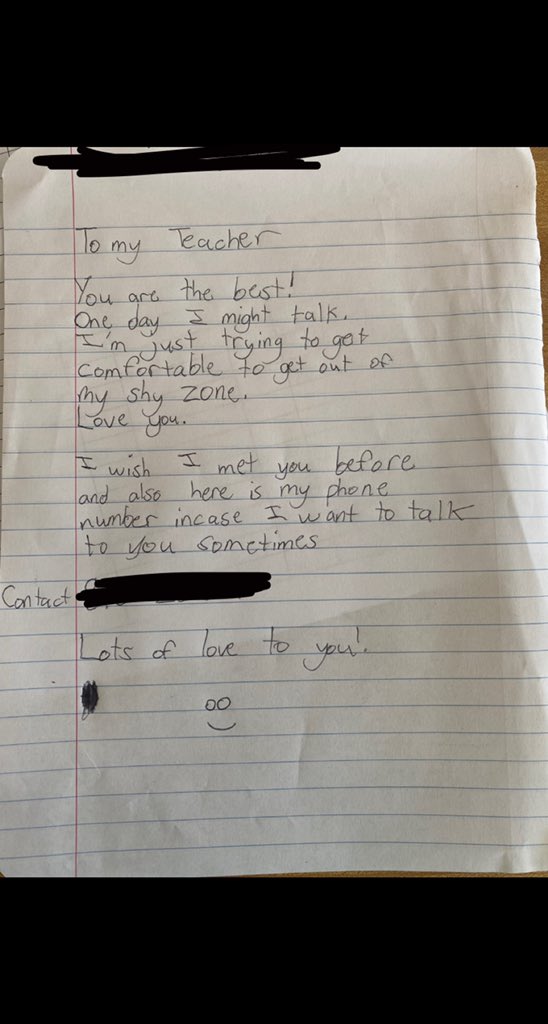 To my Teacher
You are the best!
One day I might talk.
I'm just trying to get
comfortable to get out of
my shy zone.
Love you.
I wish I met you before
and also here is my phone
number incase I want to talk
to you sometimes
Contact
Lots of love to you!